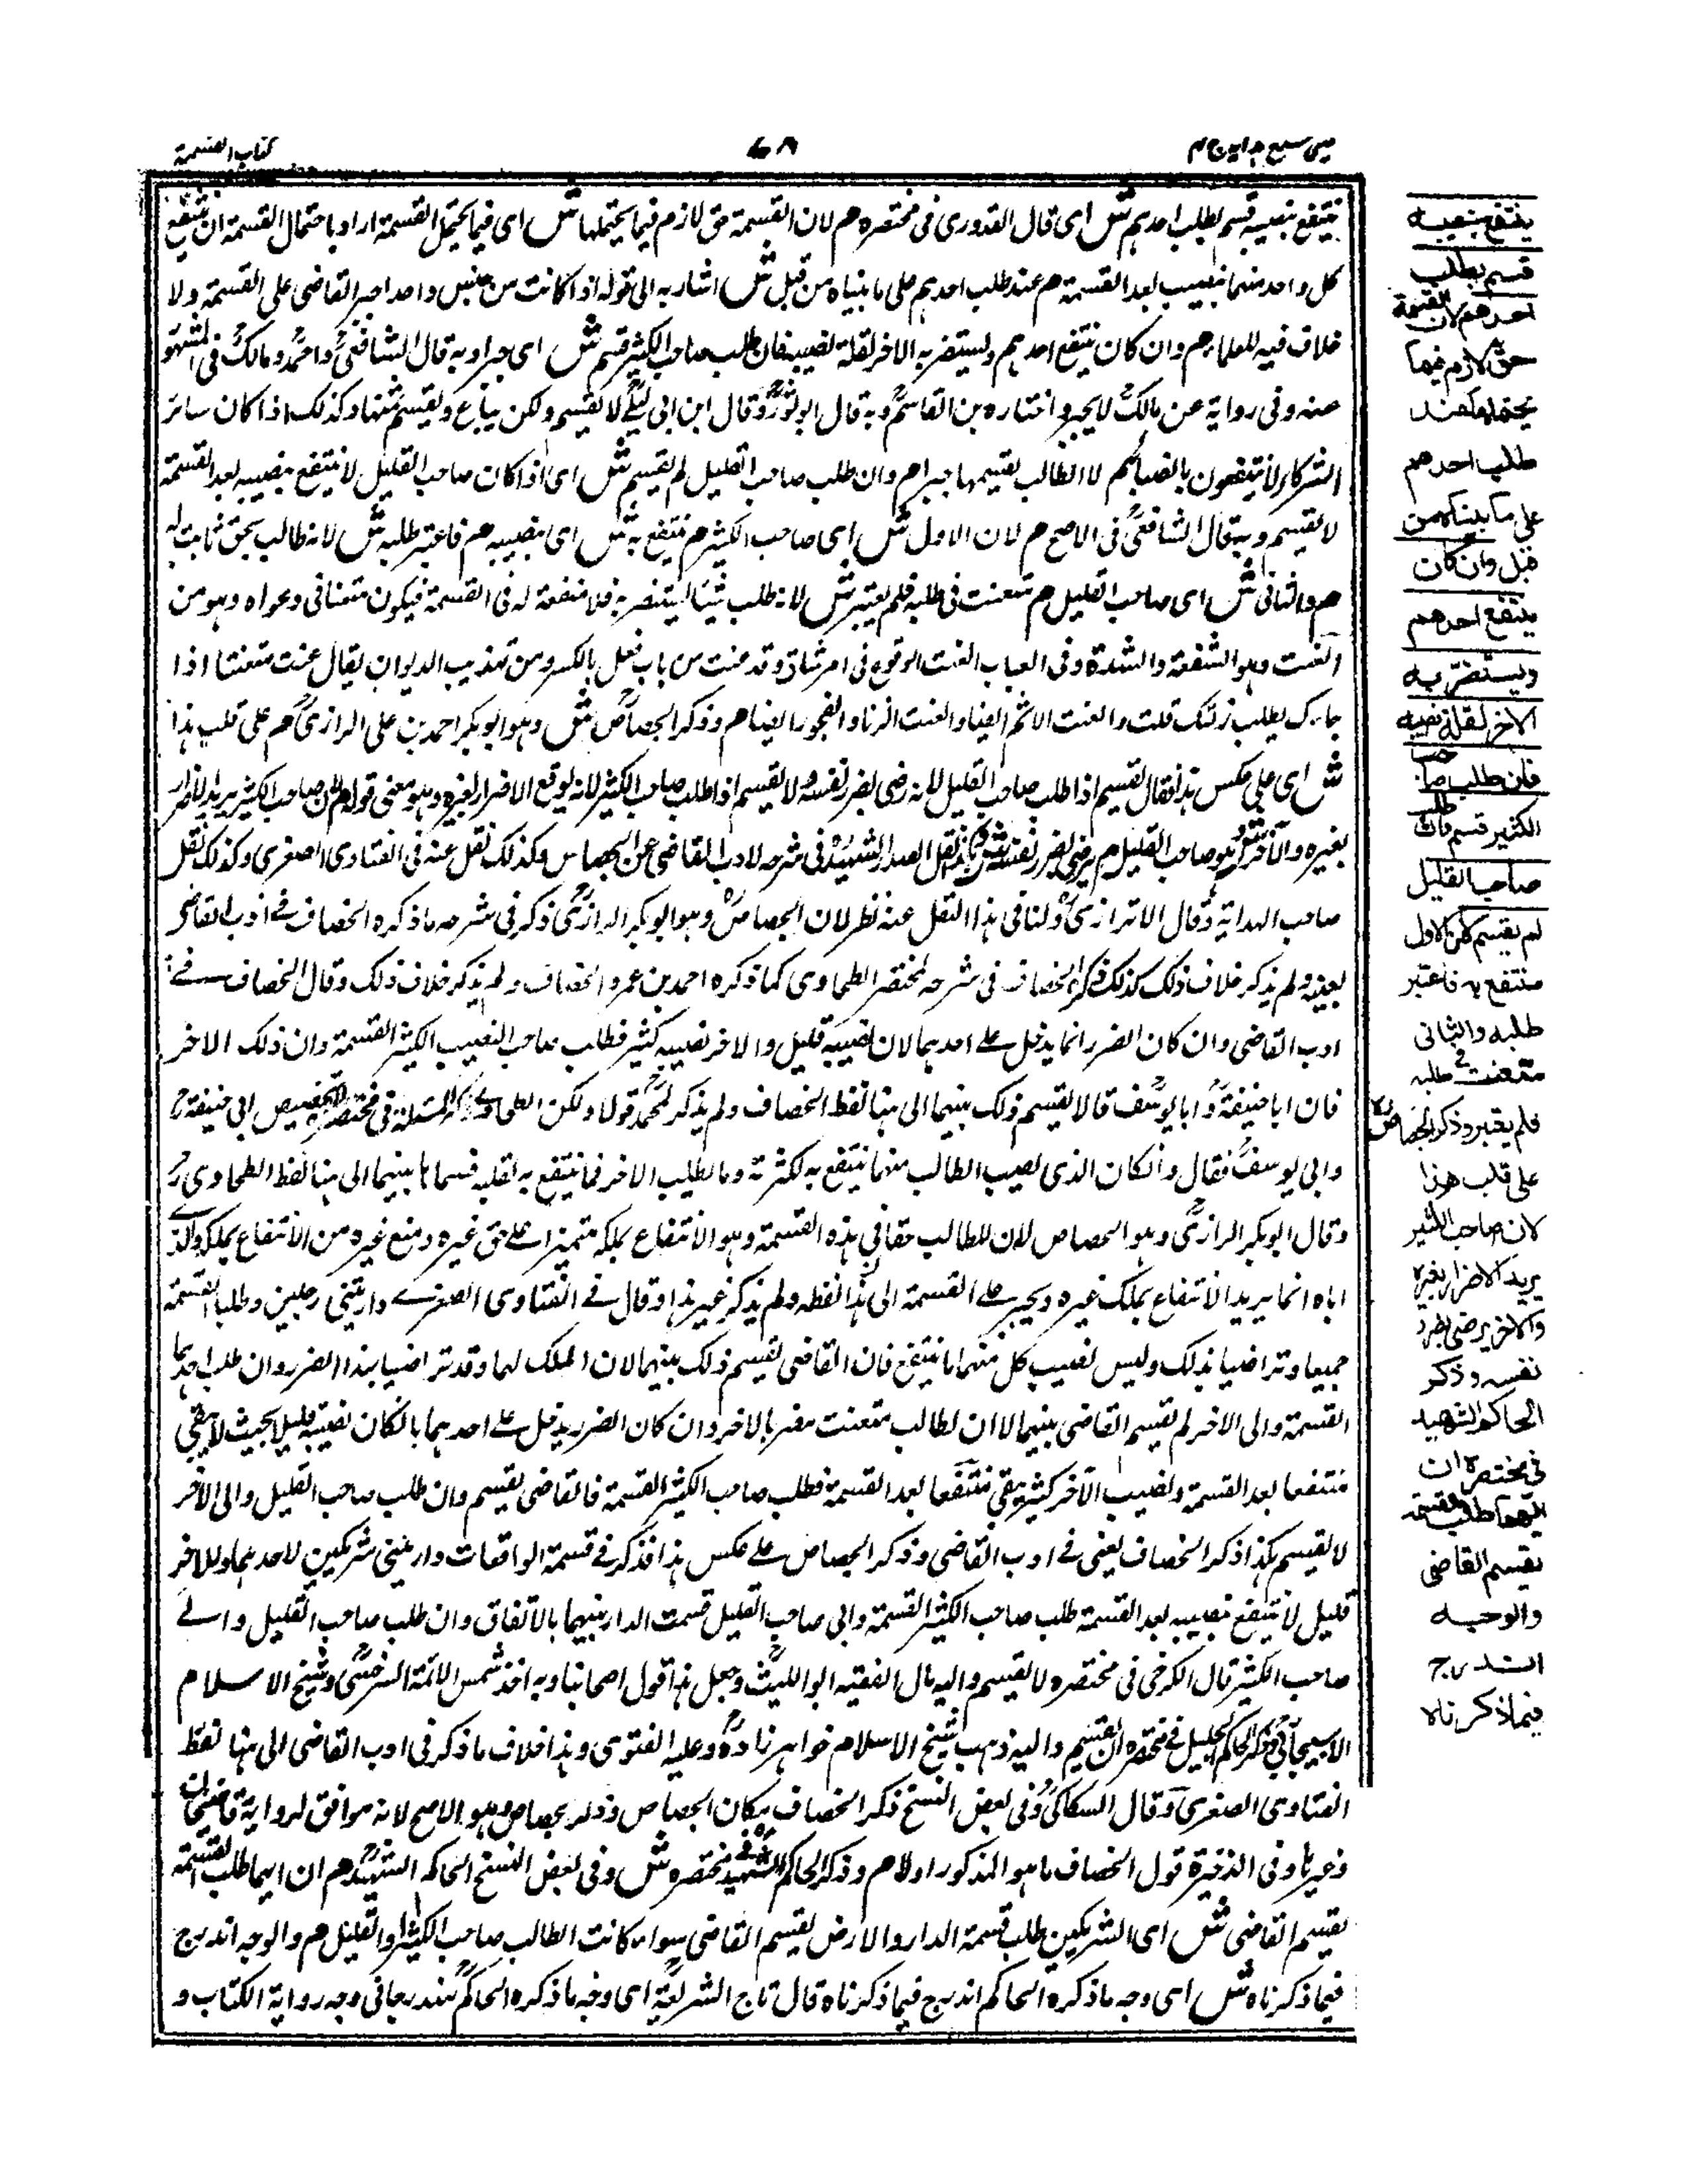 عينى شرح هداية ج ٣
٦٨
كتاب القسمة
ينتفع بنصيبه قسم بطلب احدهم ش اى قال القدورى فى مختصره م لان القسمة حق لازم فيما يحتملها ش اى فيما يحتمل القسمة اراد باحتمال القسمة ان ينتفع
كل واحد منهما بنصيبه بعد القسمة م عند طلب احدهم على ما بيناه من قبل ش اشار به الى قوله اذا كانت من جنس واحد اجبر القاضى على القسمة ولا
خلاف فيه للعلماء م وان كان ينتفع احدهم ويستضر به الاخر لقلة نصيبه فان طلب صاحب الكثير قسم ش اى جبرا وبه قال الشافعى واحمد ومالك فى المشهور
عنه وفى رواية عن مالك لا يجبر واختاره بن القاسم وبه قال ابو ثور وقال ابن ابى ليلى لا يقسم ولكن يباع ويقسم ثمنها وكذلك اذا كان سائر
الشركاء لا ينتفعون بانصبائهم الا الطالب يقسمها جبرا م وان طلب صاحب القليل لم يقسم ش اى اذا كان صاحب القليل لا ينتفع بنصيبه بعد القسمة
لا يقسم وبه قال الشافعى فى الاصح م لان الاول ش اى صاحب الكثير م ينتفع به ش اى بنصيبه م فاعتبر طلبه ش لانه طالب بحق ثابت له
م والثانى ش اى صاحب القليل م متعنت فى طلبه فلم يعتبر ش لانه طلب شيئا ليتضر به فلا منفعة له فى القسمة فيكون متعنتا فى دعواه وهو من
العنت وهو الشفعة والشدة وفى العباب العنت الوقوع فى امر شاق وقد عنت من باب فعل بالكسر ومن تهذيب الديوان يقال عنت متعنتا اذا
جاءك يطلب زلتك قلت والعنت الاثم ايضا والعنت الزنا والفجور ايضا م وذكر الجصاص ش وهو ابو بكر احمد بن على الرازى م على قلب هذا
ش اى على عكس هذا فقال يقسم اذا طلب صاحب القليل لانه رضى بضرر نفسه ولا يقسم اذا طلب صاحب الكثير لانه يوقع الاضرار لغيره وهو معنى قوله م لان صاحب الكثير يريد الاضرار
بغيره والآخر ش هو صاحب القليل م يرضى بضرر نفسه ش نقل الصدر الشهيد فى شرحه لادب القاضى عن الجصاص وكذلك نقل عنه فى الفتاوى الصغرى وكذلك نقل
صاحب الهداية وقال الاترازى ولنا فى هذا النقل عنه نظر لان الجصاص وهو ابو بكر الرازى ذكر فى شرحه ما ذكره الخصاف فى ادب القاضى
بعينه ولم يذكر خلاف ذلك كذلك ذكر الخصاف فى شرحه لمختصر الطحاوى كما ذكره احمد بن عمرو الخصاف ولم يذكر خلاف ذلك وقال الخصاف فى
ادب القاضى وان كان الضرر انما يدخل على احدهما لان نصيبه قليل والاخر نصيبه كثير فطلب صاحب النصيب الكثير القسمة وان ذلك الاخر
فان ابا حنيفة وابا يوسف قالا يقسم ذلك بينهما الى هنا لفظ الخصاف ولم يذكر لمحمد قولا ولكن الطحاوى ذكر المسئلة فى مختصره بتخصيص ابى حنيفة
وابى يوسف فقال وان كان الذى نصيب الطالب منهما ينتفع به لكثرته وما لطيلب الاخر فما ينتفع به لقلته قسماها بينهما الى هنا لفظ الطحاوى
وقال ابو بكر الرازى وهو الجصاص لان للطالب حقا فى هذه القسمة وهو الانتفاع بملكه متميزا على حق غيره ومنع غيره من الانتفاع بملكه والذى
اباه انما يريد الانتفاع بملك غيره ويجبر على القسمة الى هذا لفظه ولم يذكر غير هذا وقال فى الفتاوى الصغرى دار بين رجلين وطلبا القسمة
جميعا وتراضيا بذلك وليس نصيب كل منهما ما ينتفع فان القاضى يقسم ذلك بينهما لان الملك لهما وقد تراضيا بهذا الضرر وان طلب احدهما
القسمة والى الاخر لم يقسم القاضى بينهما لا ان لطالب متعنت مضر بالاخر وان كان الضرر يدخل على احدهما بان كان نصيبه قليلا بحيث لا يبقى
منتفعا بعد القسمة ونصيب الآخر كثير يبقى منتفعا بعد القسمة فطلب صاحب الكثير القسمة فالقاضى يقسم وان طلب صاحب القليل والى الاخر
لا يقسم هكذا ذكر الخصاف يعنى فى ادب القاضى وذكر الجصاص على عكس هذا فذكر فى قسمة الواقعات دار بين شريكين لاحدهما وللاخر
قليل لا ينتفع بنصيبه بعد القسمة طلب صاحب الكثير القسمة وابى صاحب القليل قسمت الدار بينهما بالاتفاق وان طلب صاحب القليل وابى
صاحب الكثير قال الكرخى فى مختصره لا يقسم واليه مال الفقيه ابو الليث وجعل هذا قول اصحابنا وبه اخذ شمس الائمة السرخسى وشيخ الاسلام
الاسبيجابى وذكر الحاكم الجليل فى مختصره ان يقسم واليه ذهب شيخ الاسلام خواهر زاده وعليه الفتوى وهذا خلاف ما ذكر فى ادب القاضى الى هنا لفظ
الفتاوى الصغرى وقال السكاكى وفى بعض النسخ ذكر الخصاف مكان الجصاص وذكر بجصاص وهو الاصح لانه موافق لرواية قاضيخان
وغيرها وفى الذخيرة قول الخصاف ما هو المذكور اولا م وذكر الحاكم الشهيد فى مختصره ش وفى بعض النسخ الحاكم الشهيد م ان ايهما طلب القسمة
يقسم القاضى ش اى الشريكين طلب قسمة الدار والارض يقسم القاضى سواء كانت الطالب صاحب الكثير او القليل م والوجه اندرج
فيما ذكرناه ش اى وجه ما ذكره الحاكم اندرج فيما ذكرناه قال تاج الشريعة اى وجه ما ذكره الحاكم مندرجا فى وجه رواية الكتاب و
ينتفع بنصيبه
قسم بطلب
احدهم لان القسمة
حق لازم فيما
يحتملها عند
طلب احدهم
على ما بيناه من
قبل وان كان
ينتفع احدهم
ويستضر به
الاخر لقلة نصيبه
فان طلب صاحب
الكثير قسم وان طلب
صاحب القليل
لم يقسم لان الاول
منتفع به فاعتبر
طلبه والثانى
متعنت فى طلبه
فلم يعتبر وذكر الجصاص
على قلب هذا
لان صاحب الكثير
يريد الاضرار بغيره
والاخر يرضى بضرر
نفسه وذكر
الحاكم الشهيد
فى مختصره ان
ايهما طلب القسمة
يقسم القاضى
والوجه
اندرج
فيما ذكرناه